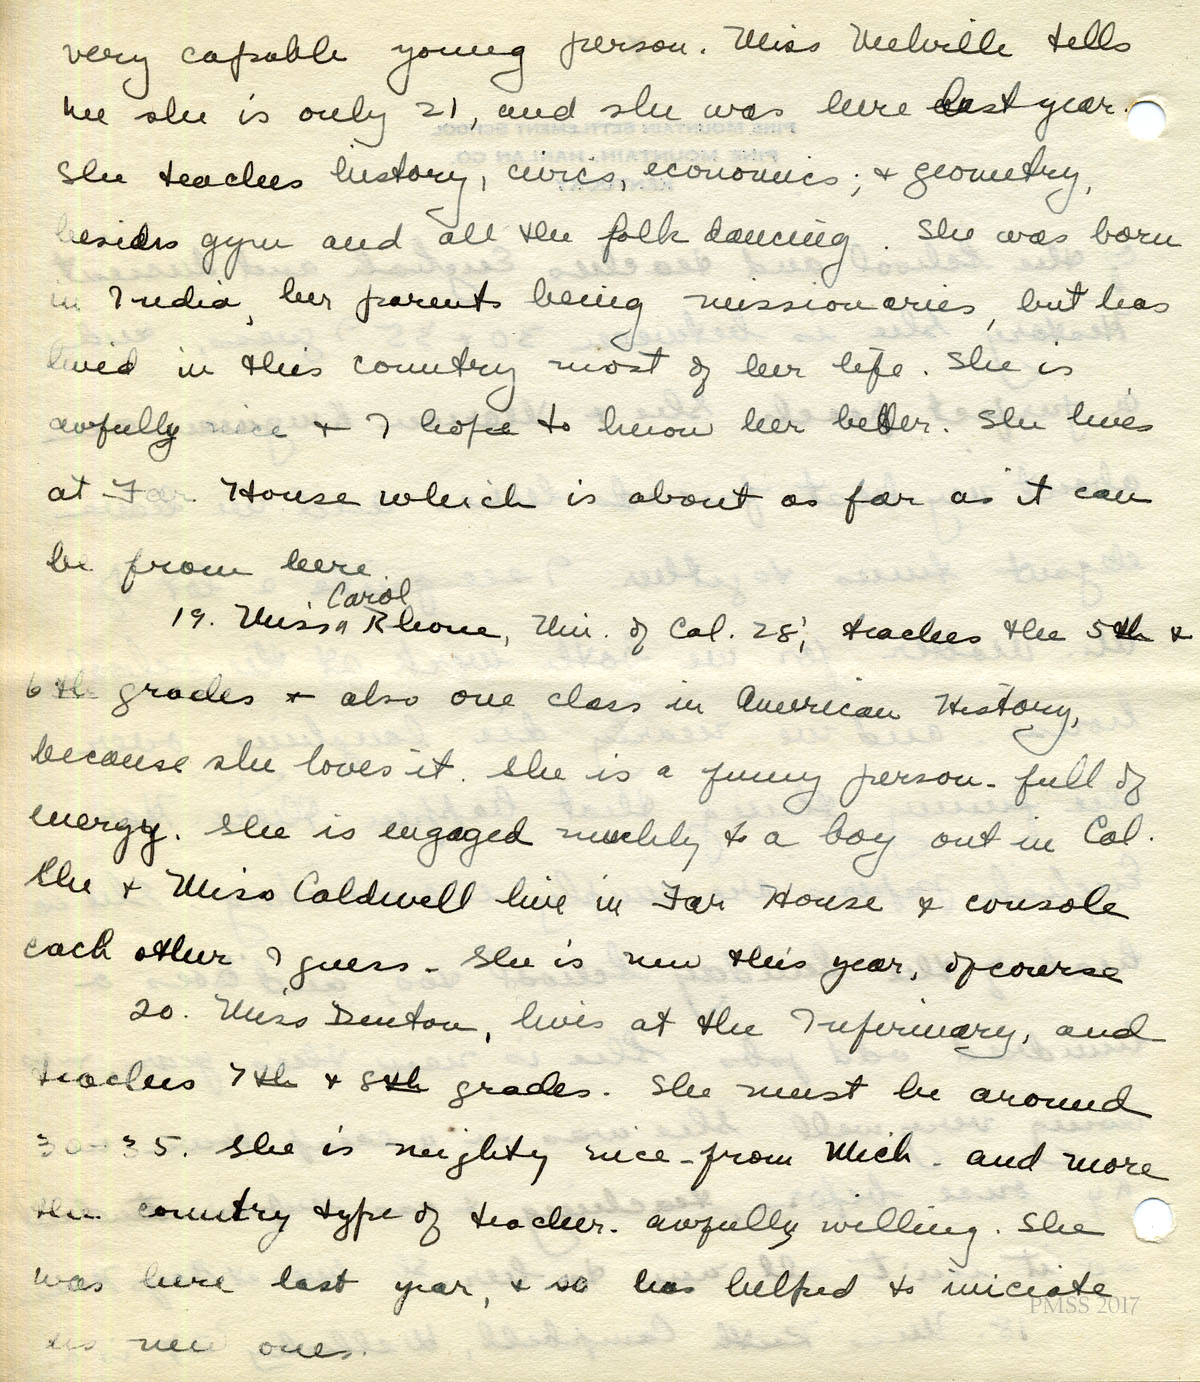 very capable young person. Miss Melville tells
me she is only 21, and she was here last year.
She teaches history, civics, economics; & geometry,
besides gym and all the folk dancing. She was born
in India, her parents being missionaries, but has
lived in this country most of her life. She is
awfully nice & I hope to know her better. She lives
at Far House which is about as far as it can
be from here.
Carol
19. Miss ^ Rhone, Uni. of Cal. 28', teaches the 5th &
6th grades & also one class in American History,
because she loves it. She is a funny person - full of
energy. She is engaged muchly to a boy out in Cal.
She & Miss Caldwell live in Far House & console
each other I guess - She is new this year, of course
20. Miss Denton, lives at the Infirmary, and
teaches 7th & 8th grades. She must be around
30-35. She is mighty nice - from Mich - and more
the country type of teacher - awfully willing. She
was here last year, & so has helped to iniciate
us new ones.
PMSS 2017